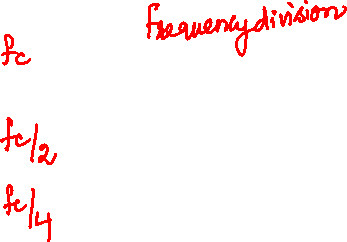 frequency division
fc
fc/2
fc/4